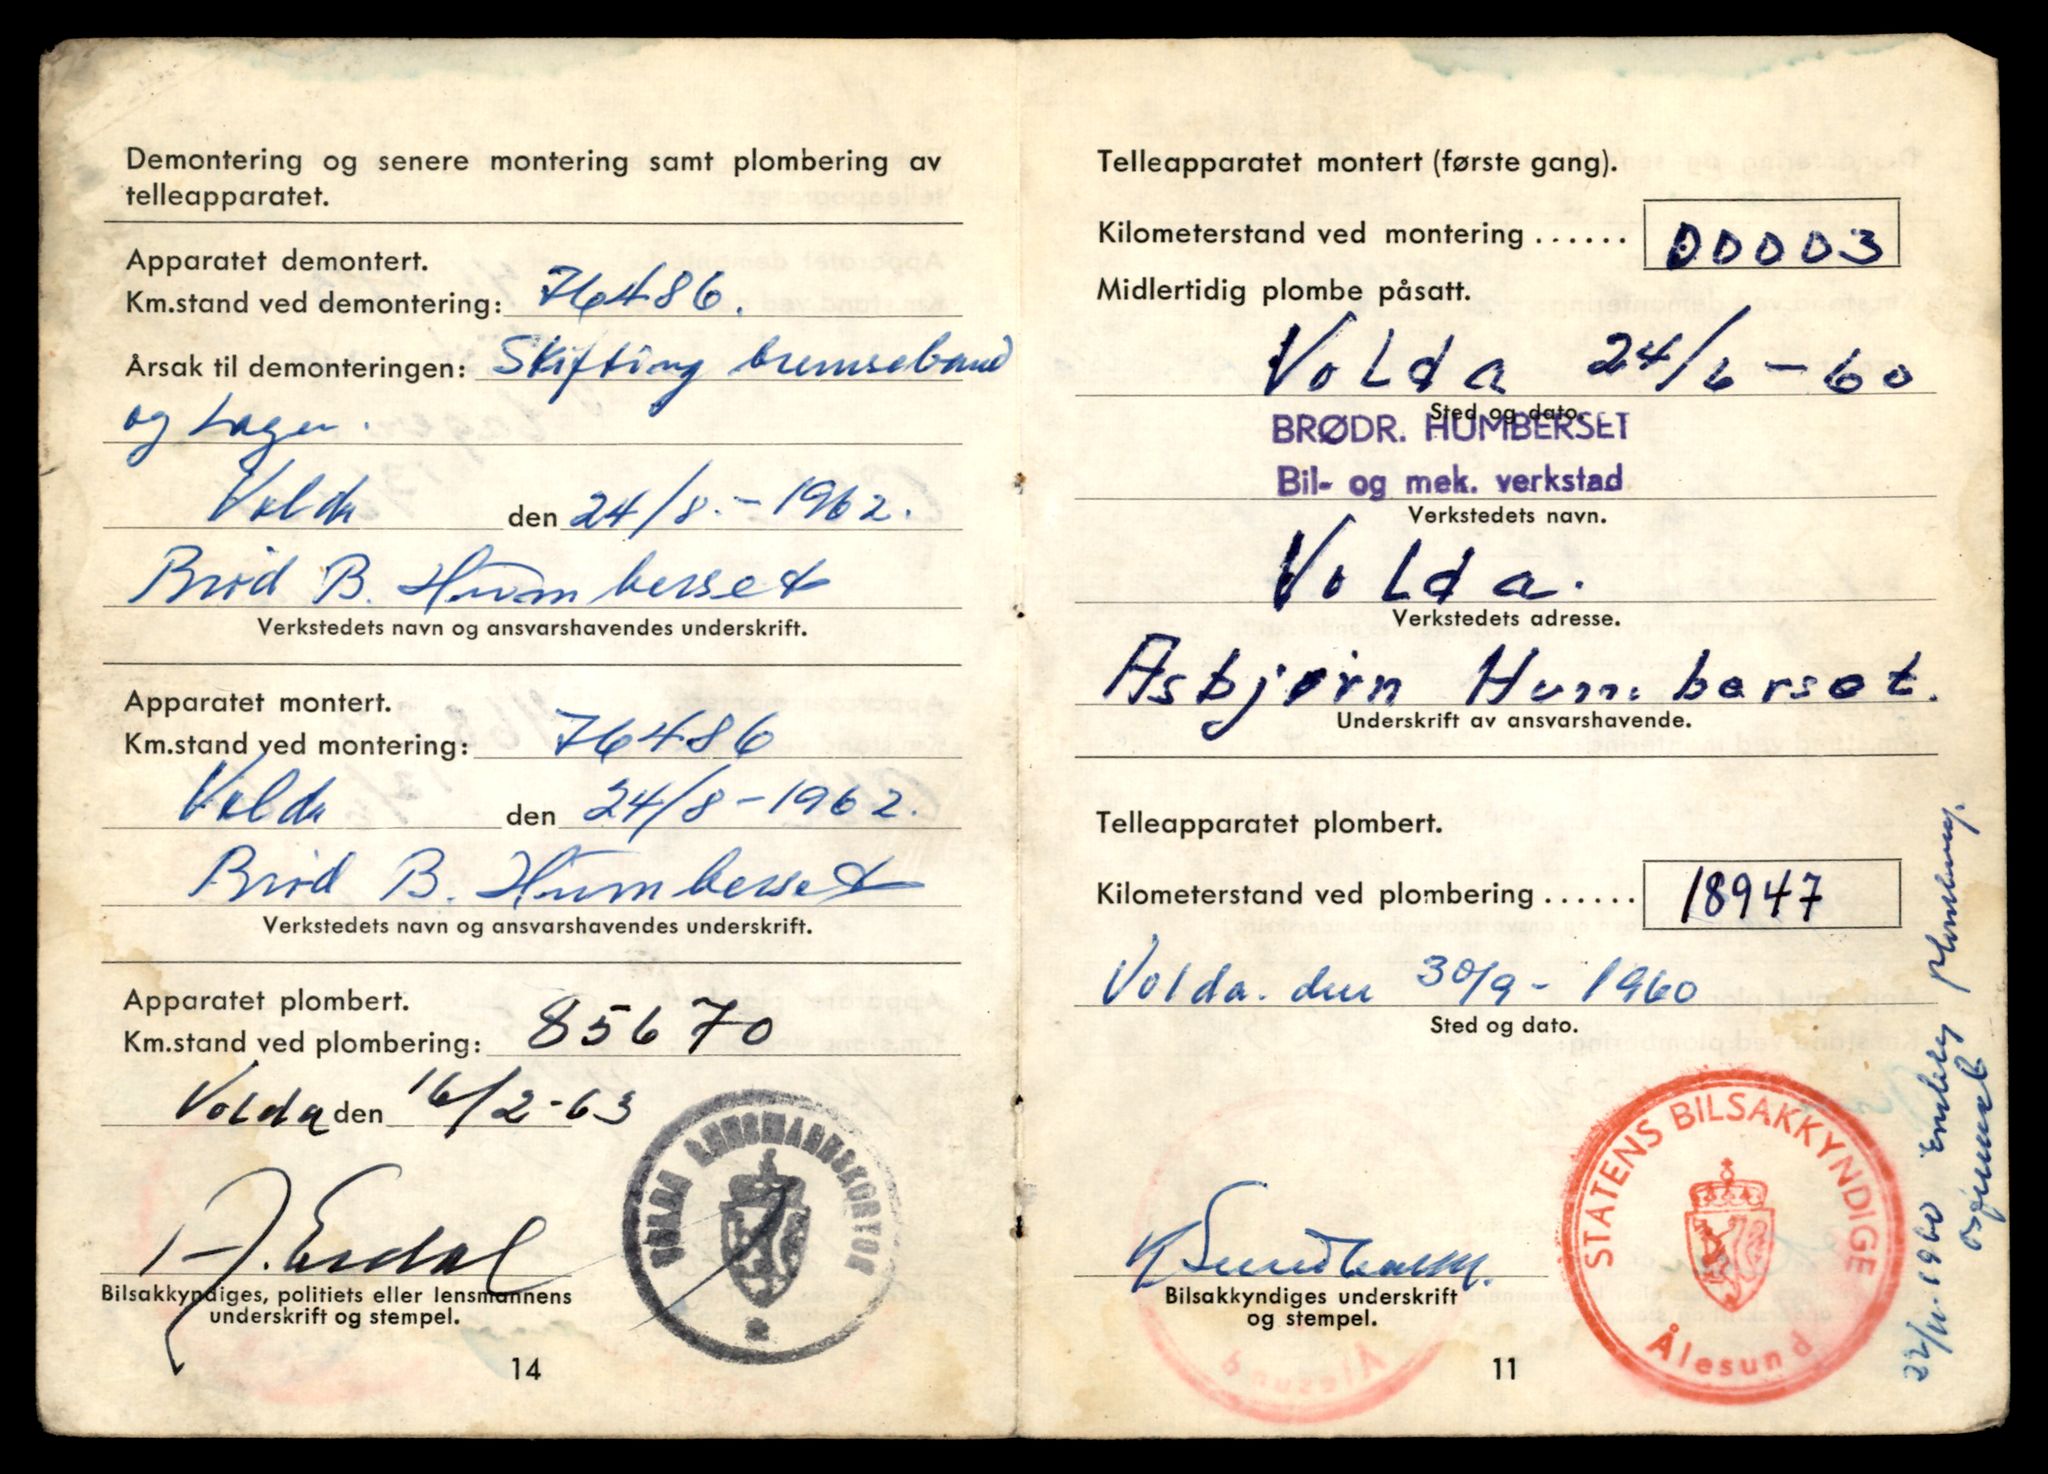 Demontering og senere montering samt plombering av
telleapparatet.
Apparatet demontert.
Km.stand ved demontering: 76486.
Årsak til demonteringen: Skifting bremseband
og Lager.
Volda den 24/8.-1962.
Brød B. Humberset
Verkstedets navn og ansvarshavendes underskrift.
Apparatet montert.
Km.stand ved montering: 76486
Volda den 24/8-1962.
Brød B. Humberset
Verkstedets navn og ansvarshavendes underskrift.
Apparatet plombert.
Km.stand ved plombering: 85670
Volda den 16/2-63
VOLDA LENSMANNSKONTOR
A. Eidal
Bilsakkyndiges, politiets eller lensmannens
underskrift og stempel.
14
Telleapparatet montert (første gang).
Kilometerstand ved montering ...... 00003
Midlertidig plombe påsatt.
Volda 24/6-60
Sted og dato.
BRØDR. HUMBERSET
Bil- og mek. verkstad
Verkstedets navn.
Volda.
Verkstedets adresse.
Asbjørn Humberset.
Underskrift av ansvarshavende.
Telleapparatet plombert.
Kilometerstand ved plombering ...... 18947
Volda. den 30/9-1960
Sted og dato.
STATENS BILSAKKYNDIGE
Ålesund
K Sundholm.
Bilsakkyndiges underskrift
og stempel.
11
22/11.1960 Endeleg plombering.